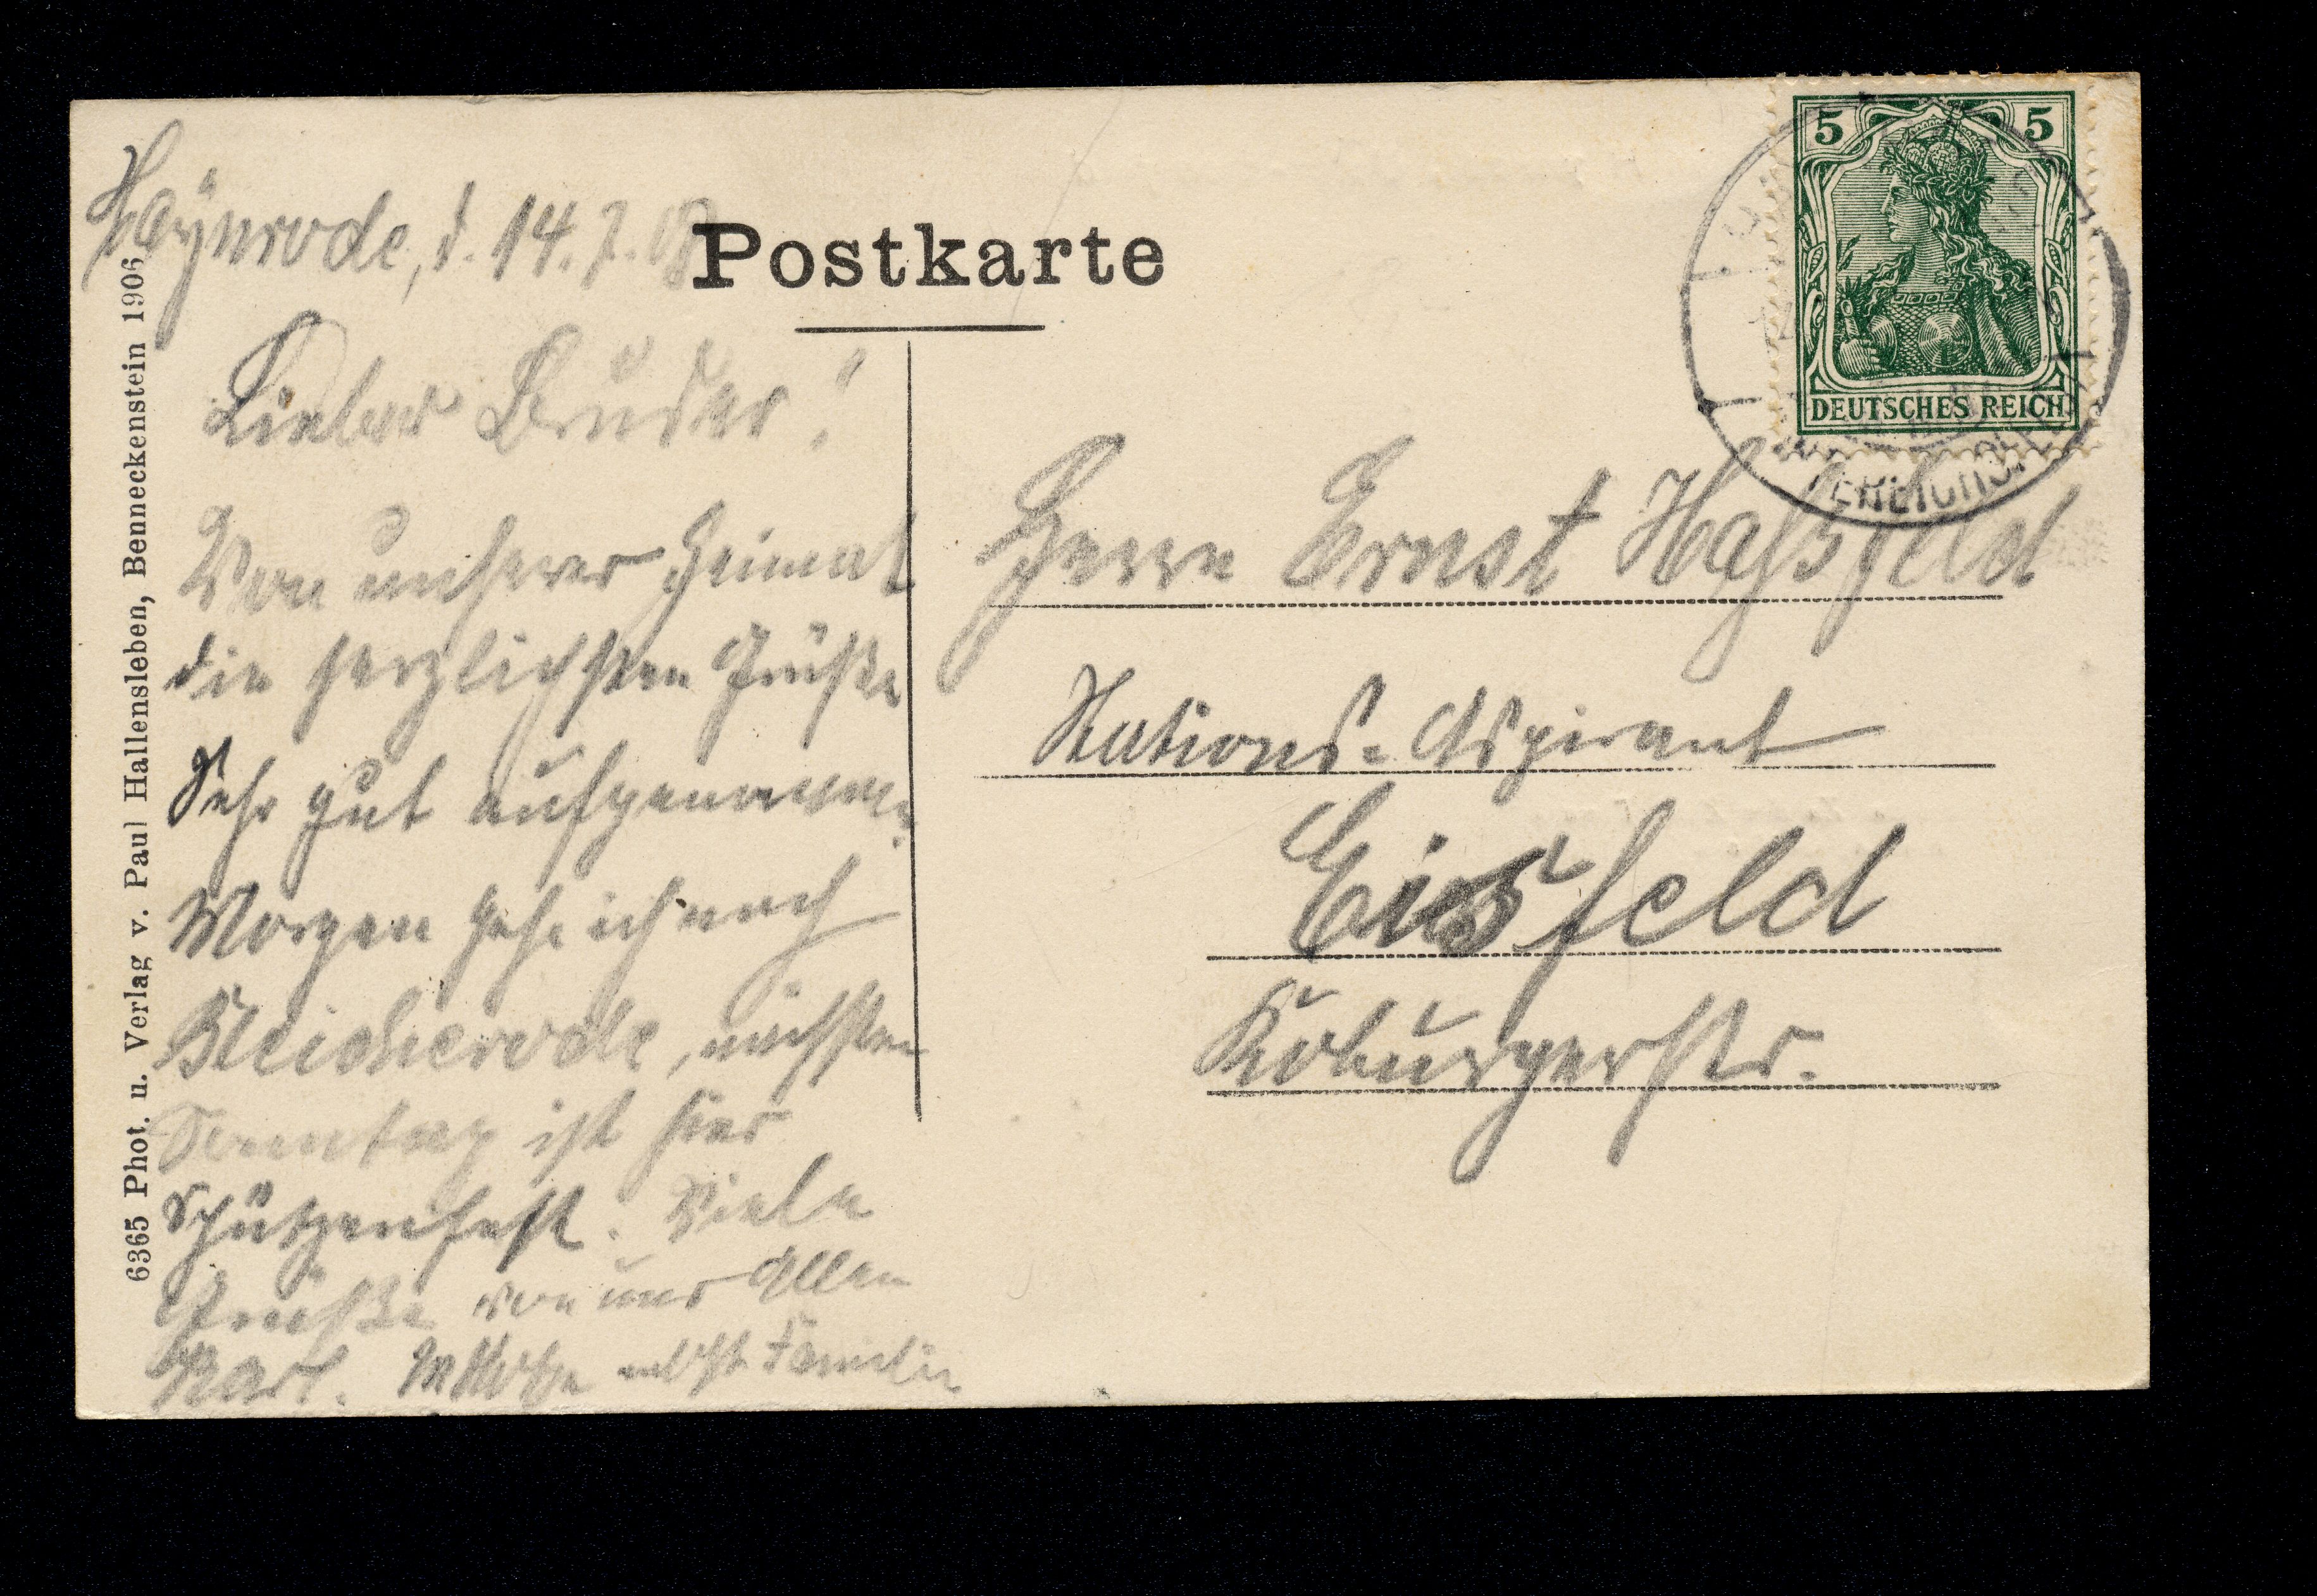 Postkarte
5 5
DEUTSCHES REICH
Haynrode, d. 14. 7. 08
Lieber Bruder!
Von unserer Heimat
die herzlichsten Grüße
Sehr gut aufgenommen.
Morgen gehe ich nach
Bleicherode, nächsten
Sonntag ist hier
Schützenfest. Viele
Grüße von uns Allen
Karl. nebst Familie
Herrn Ernst Haßfeld
Stations-Aspirant
Eisfeld
Koburgerstr.
6365 Phot. u. Verlag v. Paul Hallensleben, Benneckenstein 1906